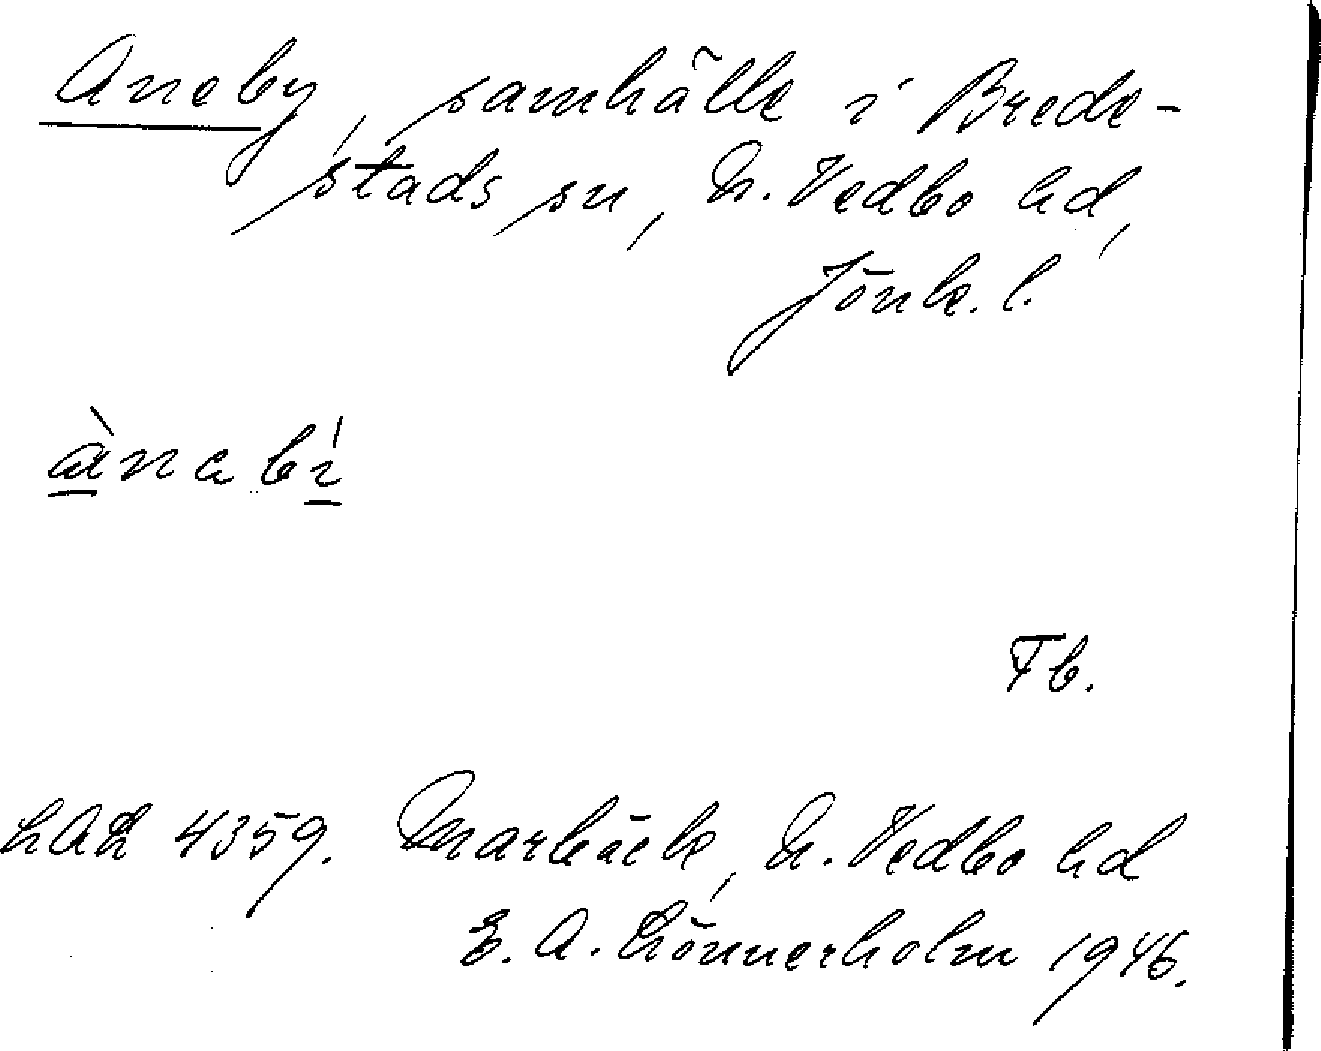 Aneby, samhälle i Brede-
stads sn, N. Vedbo hd,
Jönk. l.
ànabí
Fb.
LAL 4359. Marbäck, N. Vedbo hd
E. A. Lönnerholm 1946.